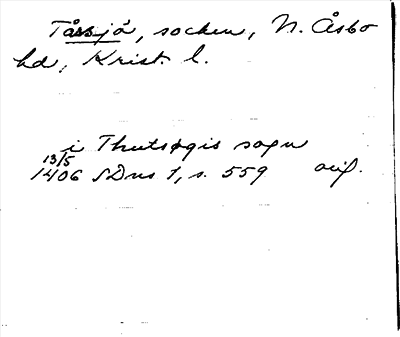 Tåssjö, socken, N. Åsbo
hd, Krist. l.
i Thutsøgis sogn
13/5
1406 SDns 1, s. 559 orig.